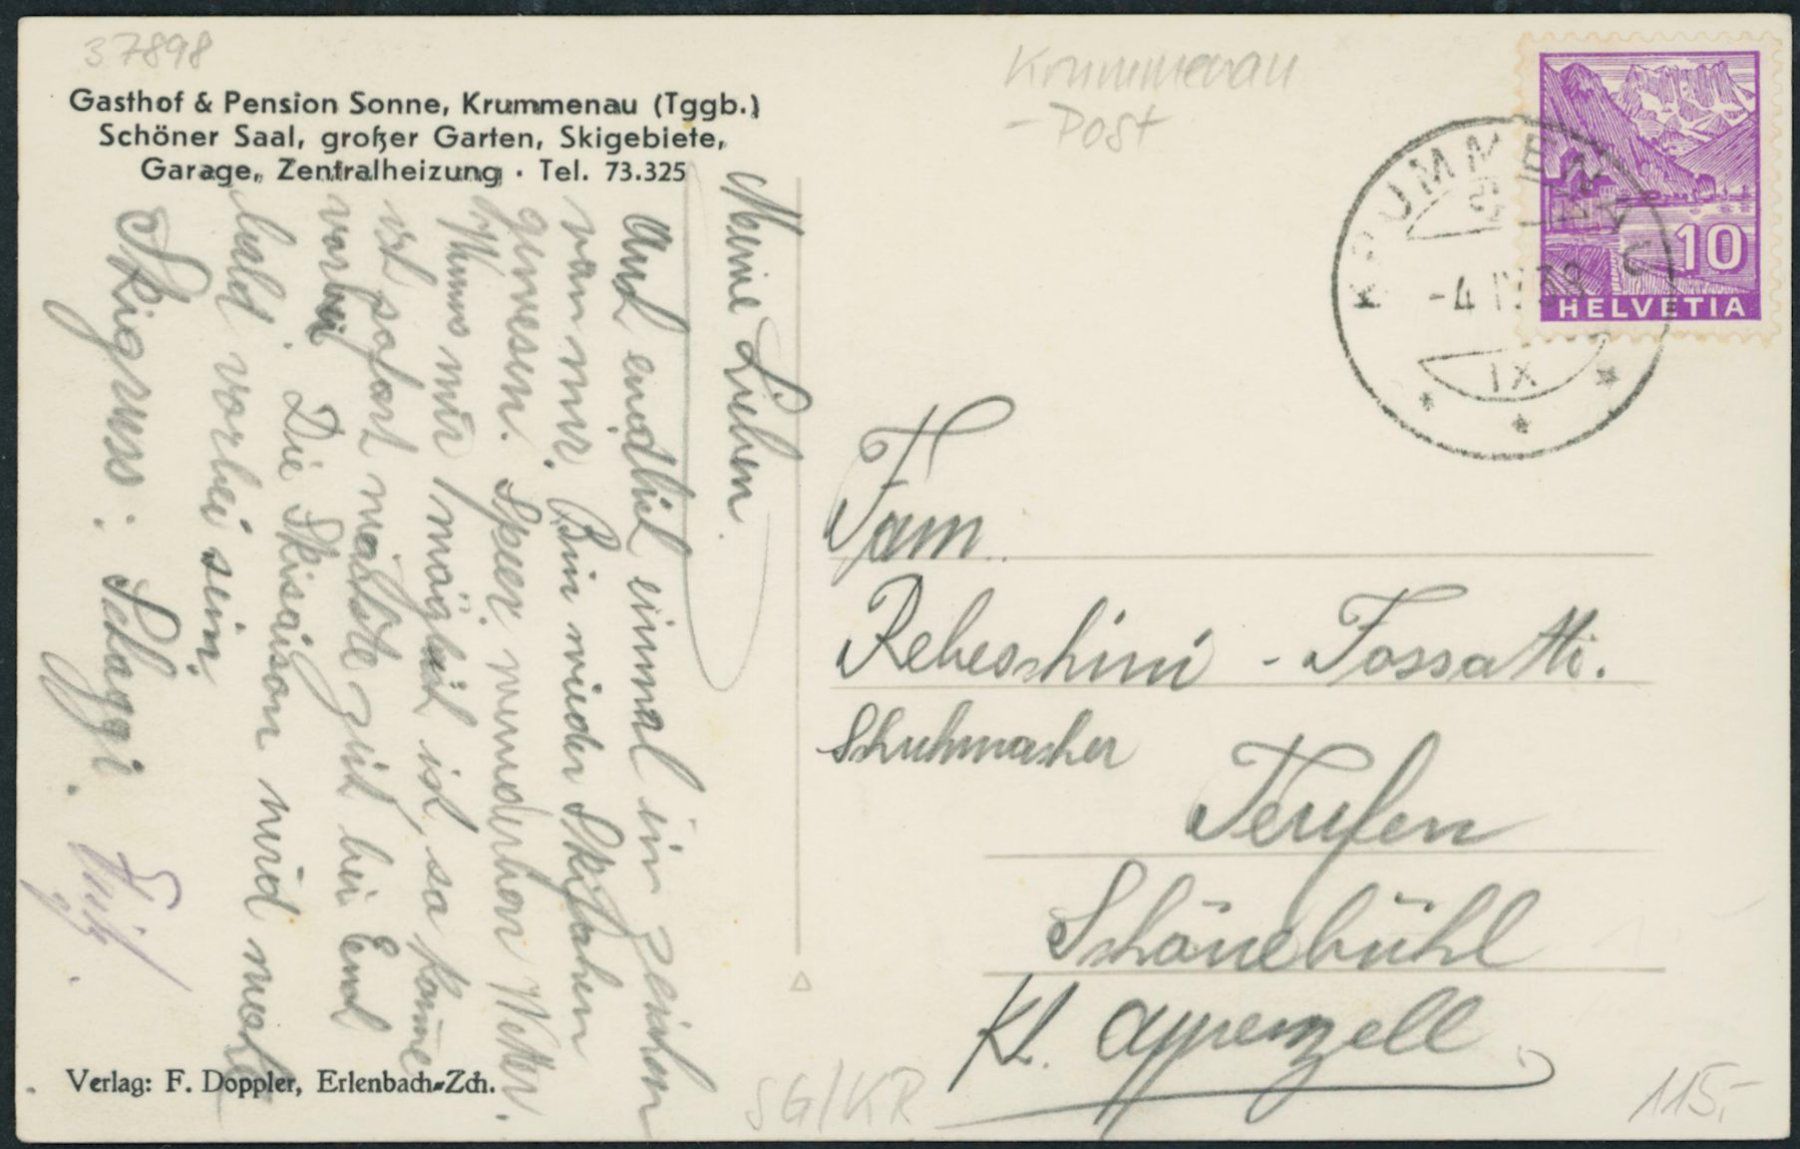 37898
Gasthof & Pension Sonne, Krummenau (Tggb.)
Schöner Saal, großer Garten, Skigebiete,
Garage, Zentralheizung · Tel. 73.325
Krummenau
- Post
KRUMMENAU
-4.IV.38
IX
10
HELVETIA
Meine Lieben.
Auch endlich einmal ein zeichen
von mir. Bin wieder Skifahren
gewesen. Speer wunderbar Wetter.
Wenns mir möglich ist, so komme
ich sofort nächste Zeit bei End
vorbei. Die Skisaison wird wohl
bald vorbei sein.
Skigruss: Schaggi.
Fam.
Rebeschini - Fossatti.
Schuhmacher
Teufen
Schönebühl
Kt. Appenzell
Verlag: F. Doppler, Erlenbach-Zch.
SG/KR
115.-